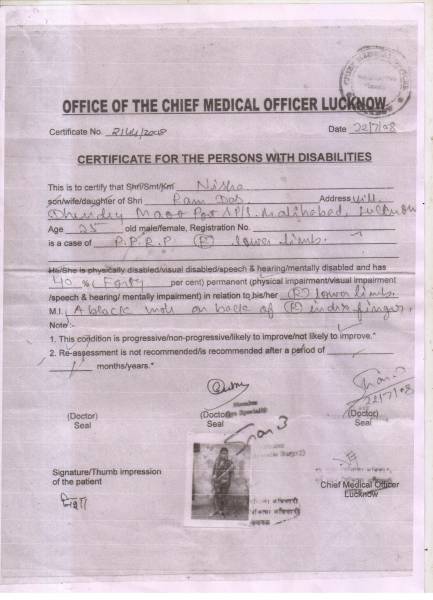 OFFICE OF THE CHIEF MEDICAL OFFICER LUCKNOW
Certificate No. 2144/2008 Date 22/7/08
CERTIFICATE FOR THE PERSONS WITH DISABILITIES
This is to certify that Shri/Smt/Km Nisha
son/wife/daughter of Shri Ram Das Address Vill.
Malihabad, Lucknow
Age 25 old male/female, Registration No.
is a case of P.P.R.P. (R) lower limb.
He/She is physically disabled/visual disabled/speech & hearing/mentally disabled and has
40 % (Forty per cent) permanent (physical impairment/visual impairment
/speech & hearing/ mentally impairment) in relation to his/her (R) lower limb.
M.I. A black mole on back of (R) index finger.
Note :-
1. This condition is progressive/non-progressive/likely to improve/not likely to improve.*
2. Re-assessment is not recommended/is recommended after a period of
months/years.*
22/7/08
(Doctor) (Doctor) (Doctor)
Seal Seal Seal
Signature/Thumb impression
of the patient
Chief Medical Officer
Lucknow